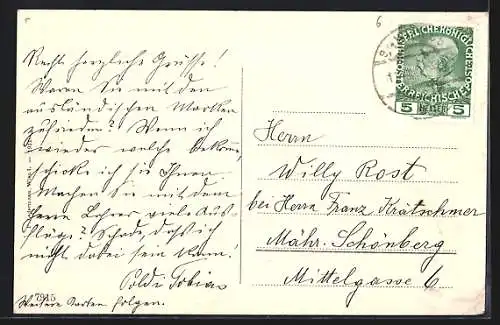 Recht herzliche Grüsse!
Waren Sie mit den
ausländischen Marken
zufrieden? Wenn ich
wieder welche bekomme,
schicke ich sie Ihnen.
Machen Sie mit dem
Herrn Lehrer viele Aus-
flüge? Schade, daß ich
nicht dabei sein kann!
Poldi Tobias
Weitere Karten folgen.
7915
6
5 HELLER 5
Herrn
Willy Rost
bei Herrn Franz Kratschmer
Mähr. Schönberg
Mittelgasse 6